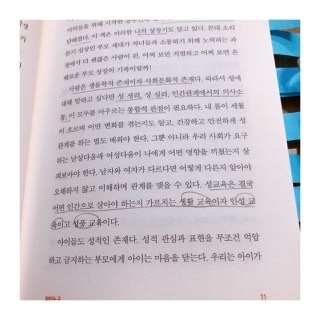 아이들을 위해 시작한 공부인데
단해졌다. 이 책은 이러한 나의 성장기도 담고 있다. 꼰대 소리
듣기 십상인 부모 세대가 자녀들과 소통하기 위해 노력하는 과
정에서 더 괜찮은 사람이 된, 어찌 보면 치열하고 어찌 보면 은
혜로운 부모 성장의 기록이랄까!
사람은 생물학적 존재이자 사회문화적 존재다. 따라서 성에
대해 말하고 싶다면 성 생리, 성 심리, 인간관계에서의 의사소
통, 이 모두를 아우르는 통합적 관점이 필요하다. 내 몸이 세월
이 흐르며 어떤 변화를 겪는지도 알고, 건강하고 안전하게 성
관계를 하는 법도 배워야 한다. 그뿐 아니라 우리 사회가 요구
하는 남성다움과 여성다움이 나에게 어떤 영향을 끼쳤는지 살
펴보아야 한다. 남자와 여자가 다르다면 어떻게 다른지 알아야
오해하지 않고 이해하며 관계를 맺을 수 있다. 성교육은 결국
어떤 인간으로 살아야 하는지 가르치는 생활 교육이자 인성 교
육이고 성품 교육이다.
아이들도 성적인 존재다. 성적 관심과 표현을 무조건 억압
하고 금지하는 부모에게 아이는 마음을 닫는다. 우리는 아이가
11